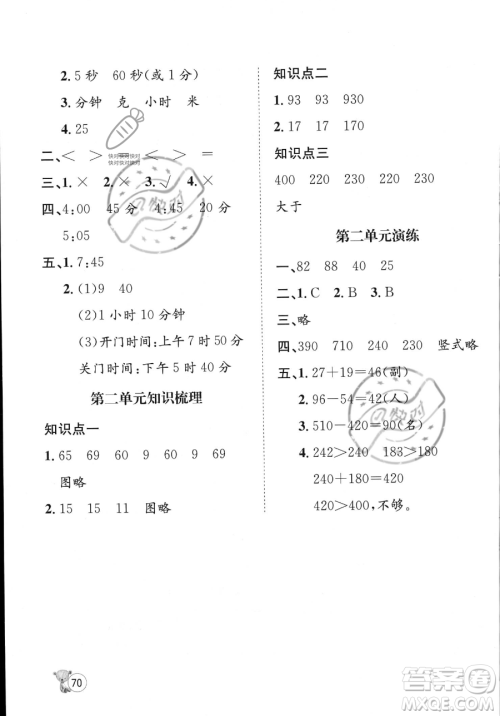 2. 5 秒　60 秒(或 1 分)
3. 分钟　克　小时　米
4. 25
快对快对快对
快对快对快对
二、＜　＞　＜　＞　＝
三、1. ×　2. ×　3. √　4. ×
四、4:00　45 分　4:45　20 分
5:05
五、1. 7:45
2. (1)9　40
(2)1 小时 10 分钟
(3)开门时间:上午 7 时 50 分
关门时间:下午 5 时 40 分
第二单元知识梳理
知识点一
1. 65　69　60　9　60　9　69
图略
2. 15　15　11　图略
知识点二
1. 93　93　930
2. 17　17　170
知识点三
400　220　230　220　230
大于
第二单元演练
一、82　88　40　25
二、1. C　2. B　3. B
三、略
四、390　710　240　230　竖式略
五、1. 27+19=46(副)
2. 96-54=42(人)
3. 510-420=90(本)
4. 242＞240　181＞180
240+180=420
420＞400，不够。
70
答案圈
MXQE.COM